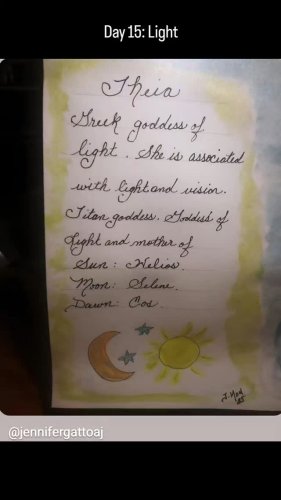 Day 15: Light
Theia
Greek goddess of
light. She is associated
with light and vision.
Titan goddess. Goddess of
Light and mother of
Sun: Helios.
Moon: Selene.
Dawn: Eos.
@jennifergattoaj